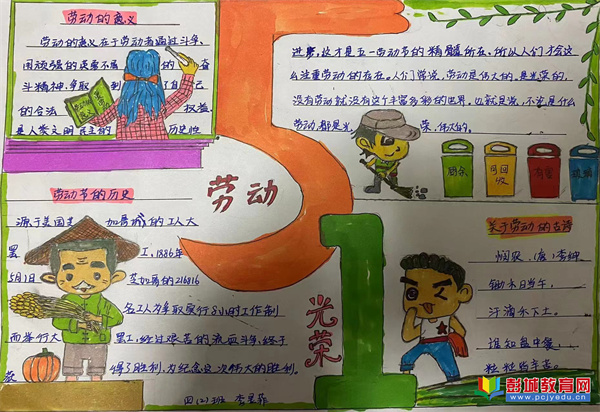 劳动的意义
劳动的意义在于劳动者通过斗争、
用顽强的 的奋
斗精神,争取到 了自己
的合法 权益,
是人类文明民主的 历史性
进步,这才是五一劳动节的精髓所在、所以人们才会这
么注重劳动的存在。人们常说,劳动是伟大的,是光荣的,
没有劳动就没有这个丰富多彩的世界。也就是说,不论是什么
劳动,都是光 荣、伟大的。
5
劳动
1
光荣
厨余
可回收
有害
劳动节的历史
源于美国芝加哥城的工人大
罢 工,1886年
5月1日 芝加哥的216816
名工人为争取实行8小时工作制
而举行大 罢工,经过艰苦的流血斗争,终于
获 得了胜利,为纪念这次伟大的胜利,
关于劳动的古诗
悯农 (唐)李绅
锄禾日当午,
汗滴禾下土。
谁知盘中餐,
粒粒皆辛苦。
四(2)班
彭城教育网
www.pcjyedu.cn